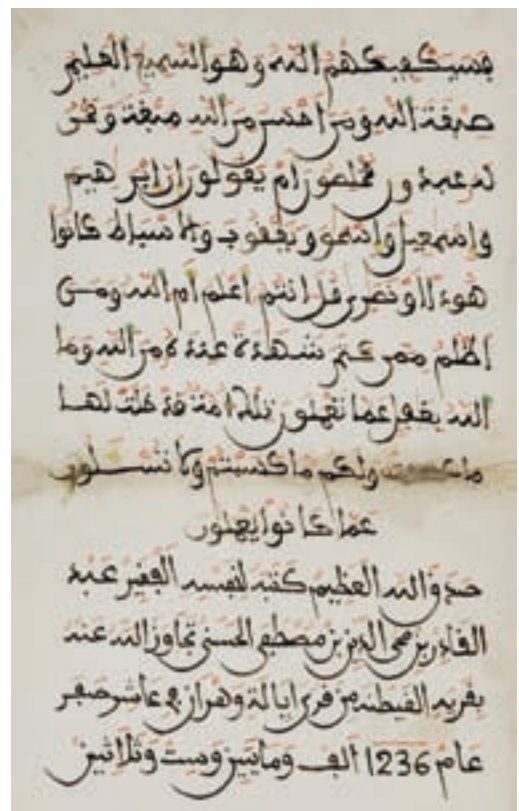 فسيكفيكهم الله وهو السميع العليم
صبغة الله ومن احسن من الله صبغة ونحن
له عبدون ام يقولون ان ابرهيم
واسمعيل واسحق ويعقوب والاسباط كانوا
هودا او نصرى قل انتم اعلم ام الله ومن
اظلم ممن كتم شهدة عنده من الله وما
الله بغفل عما تعملون تلك امة قد خلت لها
ما كسبت ولكم ما كسبتم ولا تسلون
عما كانوا يعملون
صدق الله العظيم كتبه لنفسه الفقير عبد
القادر بن محي الدين بن مصطفى الحسني تجاوز الله عنه
بقرية القيطنه من قرى ايالة وهران في عاشر صفر
عام 1236 الف ومايتين وست وثلاثين